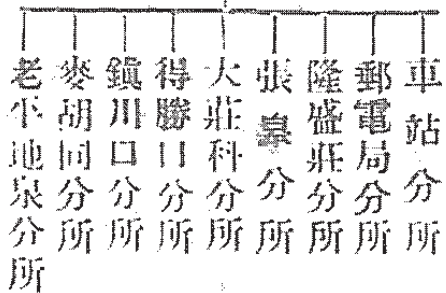 車站分所
郵電局分所
隆盛莊分所
張皋分所
大莊科分所
得勝口分所
鎮川口分所
麥胡同分所
老平地泉分所